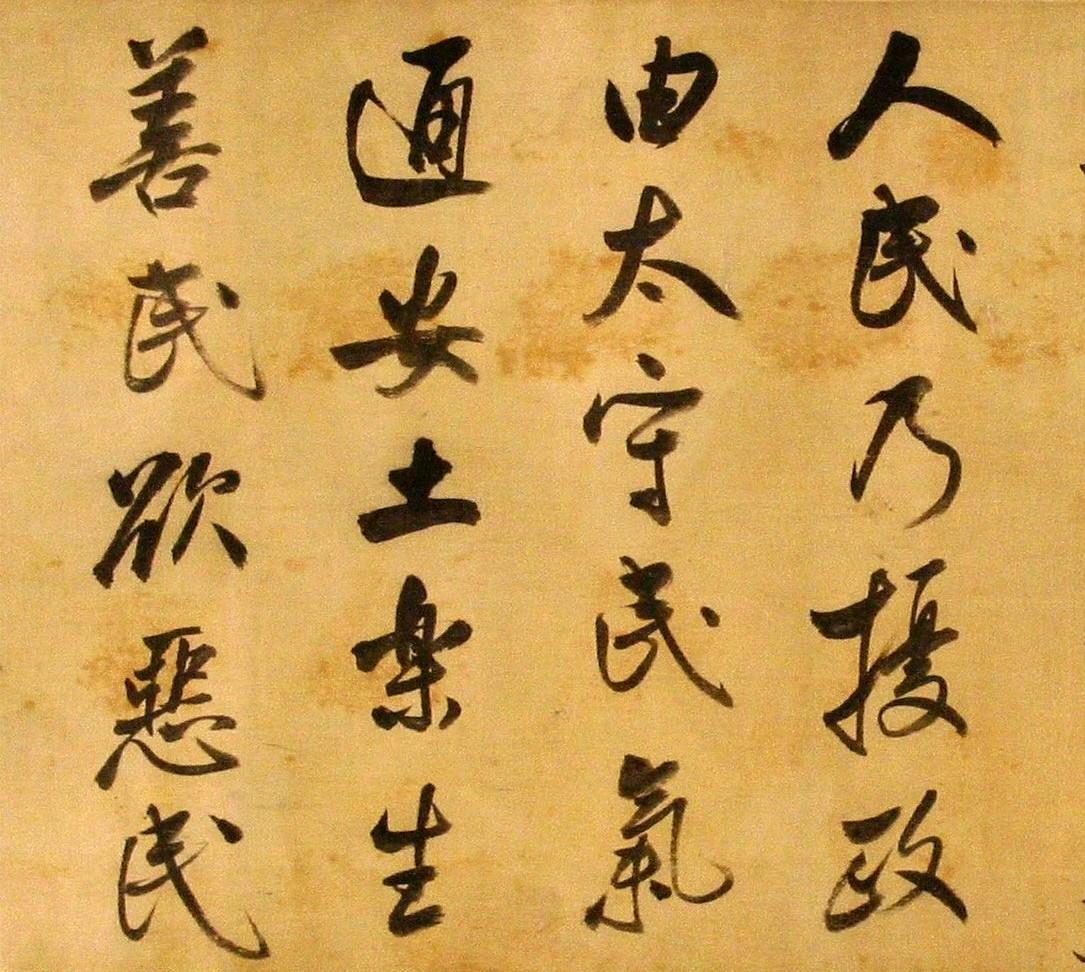 人民乃擾政
由太守民氣
通安土樂生
善民欲惡民